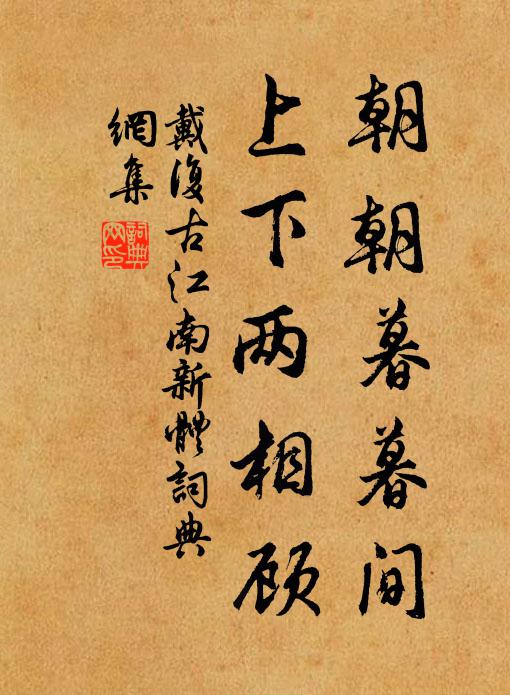 朝朝暮暮间
上下两相顾
戴復古江南新體詞典
網集
詞典
网印